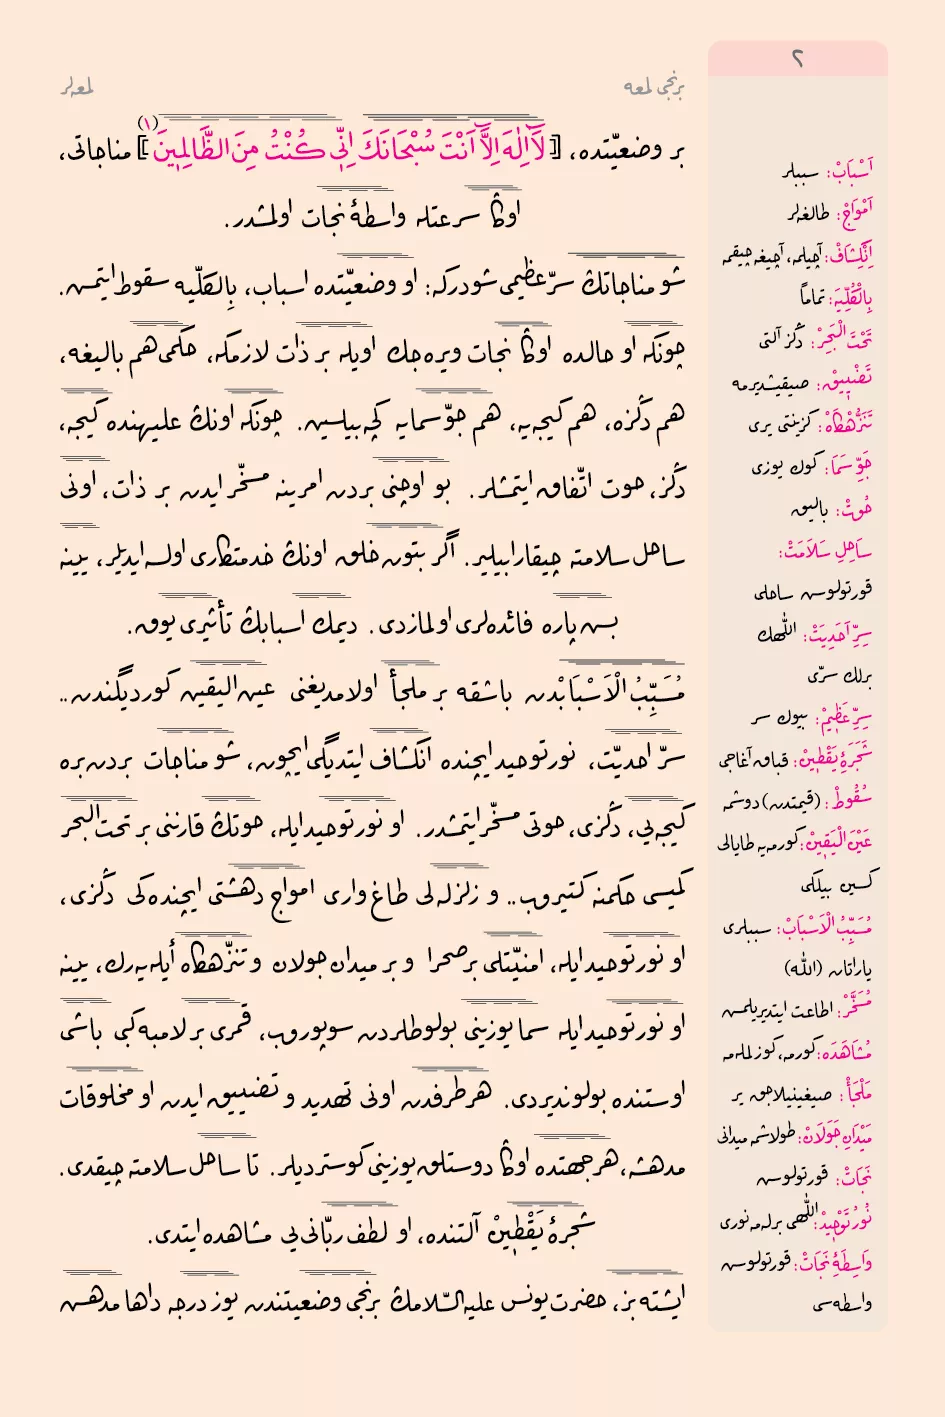 ٢
برنجی لمعه
لمعه‌لر
بر وضعیّتده، [لَٓا اِلٰهَ اِلَّٓا اَنْتَ سُبْحَانَكَ اِنّ۪ى كُنْتُ مِنَ الظَّالِم۪ينَ](١) مناجاتی،
اوڭا سرعتله واسطۀ نجات اولمشدر.
شو مناجاتڭ سرّ عظیمی شودركه: او وضعیّتده اسباب، بِالكلّیه سقوط ایتمش.
چونكه او حالده اوڭا نجات ویره‌جك اویله بر ذات لازمكه، حكمی هم بالیغه،
هم دڭزه، هم كیجه‌یه، هم جوّ سمایه كچه‌بیلسین. چونكه اونڭ علیهنده كیجه،
دڭز، حوت اتّفاق ایتمشلر. بو اوچنی بردن امرینه مسخّر ایدن بر ذات، اونی
ساحل سلامته چیقارابیلیر. اگر بتون خلق اونڭ خدمتكاری اولسه ایدیلر، یینه
بش پاره فائده‌لری اولمازدی. دیمك اسبابڭ تأثیری یوق.
مُسَبِّبُ الْاَسْبَابْدن باشقه بر ملجأ اولامدیغنی عین الیقین كوردیگندن..
سرّ احدیّت، نور توحید ایچنده انكشاف ایتدیگی ایچون، شو مناجات بردن بره
كیجه‌یی، دڭزی، حوتی مسخّر ایتمشدر. او نور توحید ایله، حوتڭ قارننی بر تحت البحر
كمیسی حكمنه كتیروب.. و زلزله‌لی طاغ واری امواج دهشتی ایچنده‌كی دڭزی،
او نور توحید ایله، امنیّتلی بر صحرا و بر میدان جولان و تنزّهكاه أیله‌یه‌رك، یینه
او نور توحید ایله سما یوزینی بولوطلردن سوپوروب، قمری بر لامبه كبی باشی
اوستنده بولوندیردی. هر طرفدن اونی تهدید و تضییق ایدن او مخلوقات
مدهشه، هر جهتده اوڭا دوستلق یوزینی كوستردیلر. تا ساحل سلامته چیقدی.
شجرۀ یَقْط۪ینْ آلتنده، او لطف ربّانی‌یی مشاهده ایتدی.
ایشته بز، حضرت یونس علیه السّلامڭ برنجی وضعیتندن یوز درجه داها مدهش
اَسْبَابْ: سببلر
اَمْوَاجْ: طالغه‌لر
اِنْكِشَافْ: آچیلمه، آچیغه چیقمه
بِالْكُلِّیَه: تماماً
تَحْتَ الْبَحِرْ: دڭز آلتی
تَضْی۪یقْ: صیقیشدیرمه
تَنَزُّهْكَاهْ: كزینتی یری
جَوِّ سَمَا: كوك یوزی
حُوتْ: بالیق
سَاحِلِ سَلَامَتْ:
قورتولوش ساحلی
سِرِّ اَحَدِیَتْ: اللّٰهڭ
برلك سرّی
سِرِّ عَظ۪یمْ: بیوك سر
شَجَرَۀِ یَقْط۪ینْ: قباق آغاجی
سُقُوطْ: (قیمتدن) دوشمه
عَیْنَ الْیَق۪ینْ: كورمه‌یه طایالی
كسین بیلكی
مُسَبِّبُ الْاَسْبَابْ: سببلری
یاراتان (اللّٰه)
مُسَخَّرْ: اطاعت ایتدیریلمش
مُشَاهَدَه: كورمه، كوزلمله‌مه
مَلْجَأْ: صیغینیلاجق یر
مَیْدَانِ جَوَلَانْ: طولاشمه میدانی
نَجَاتْ: قورتولوش
نُورُ تَوْح۪یدْ: اللّٰهی برله‌مه نوری
وَاسِطَۀِ نَجَاتْ: قورتولوش
واسطه‌سی